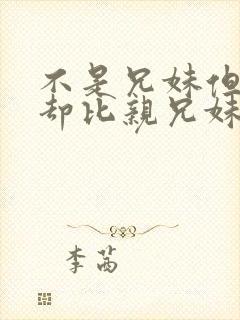 不是兄妹但
却比亲兄妹
李茜